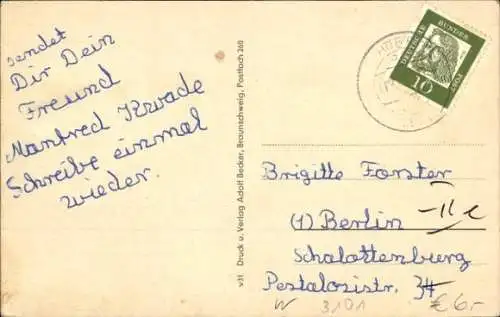 sendet
Dir Dein
Freund
Manfred Kwade
Schreibe einmal
wieder.
v31 Druck u. Verlag Adolf Becker, Braunschweig, Postfach 260
DEUTSCHE BUNDESPOST
10
Brigitte Forster
(1) Berlin -11e
Schalottenburg
Pestalozistr. 34
W 3101 € 6,-